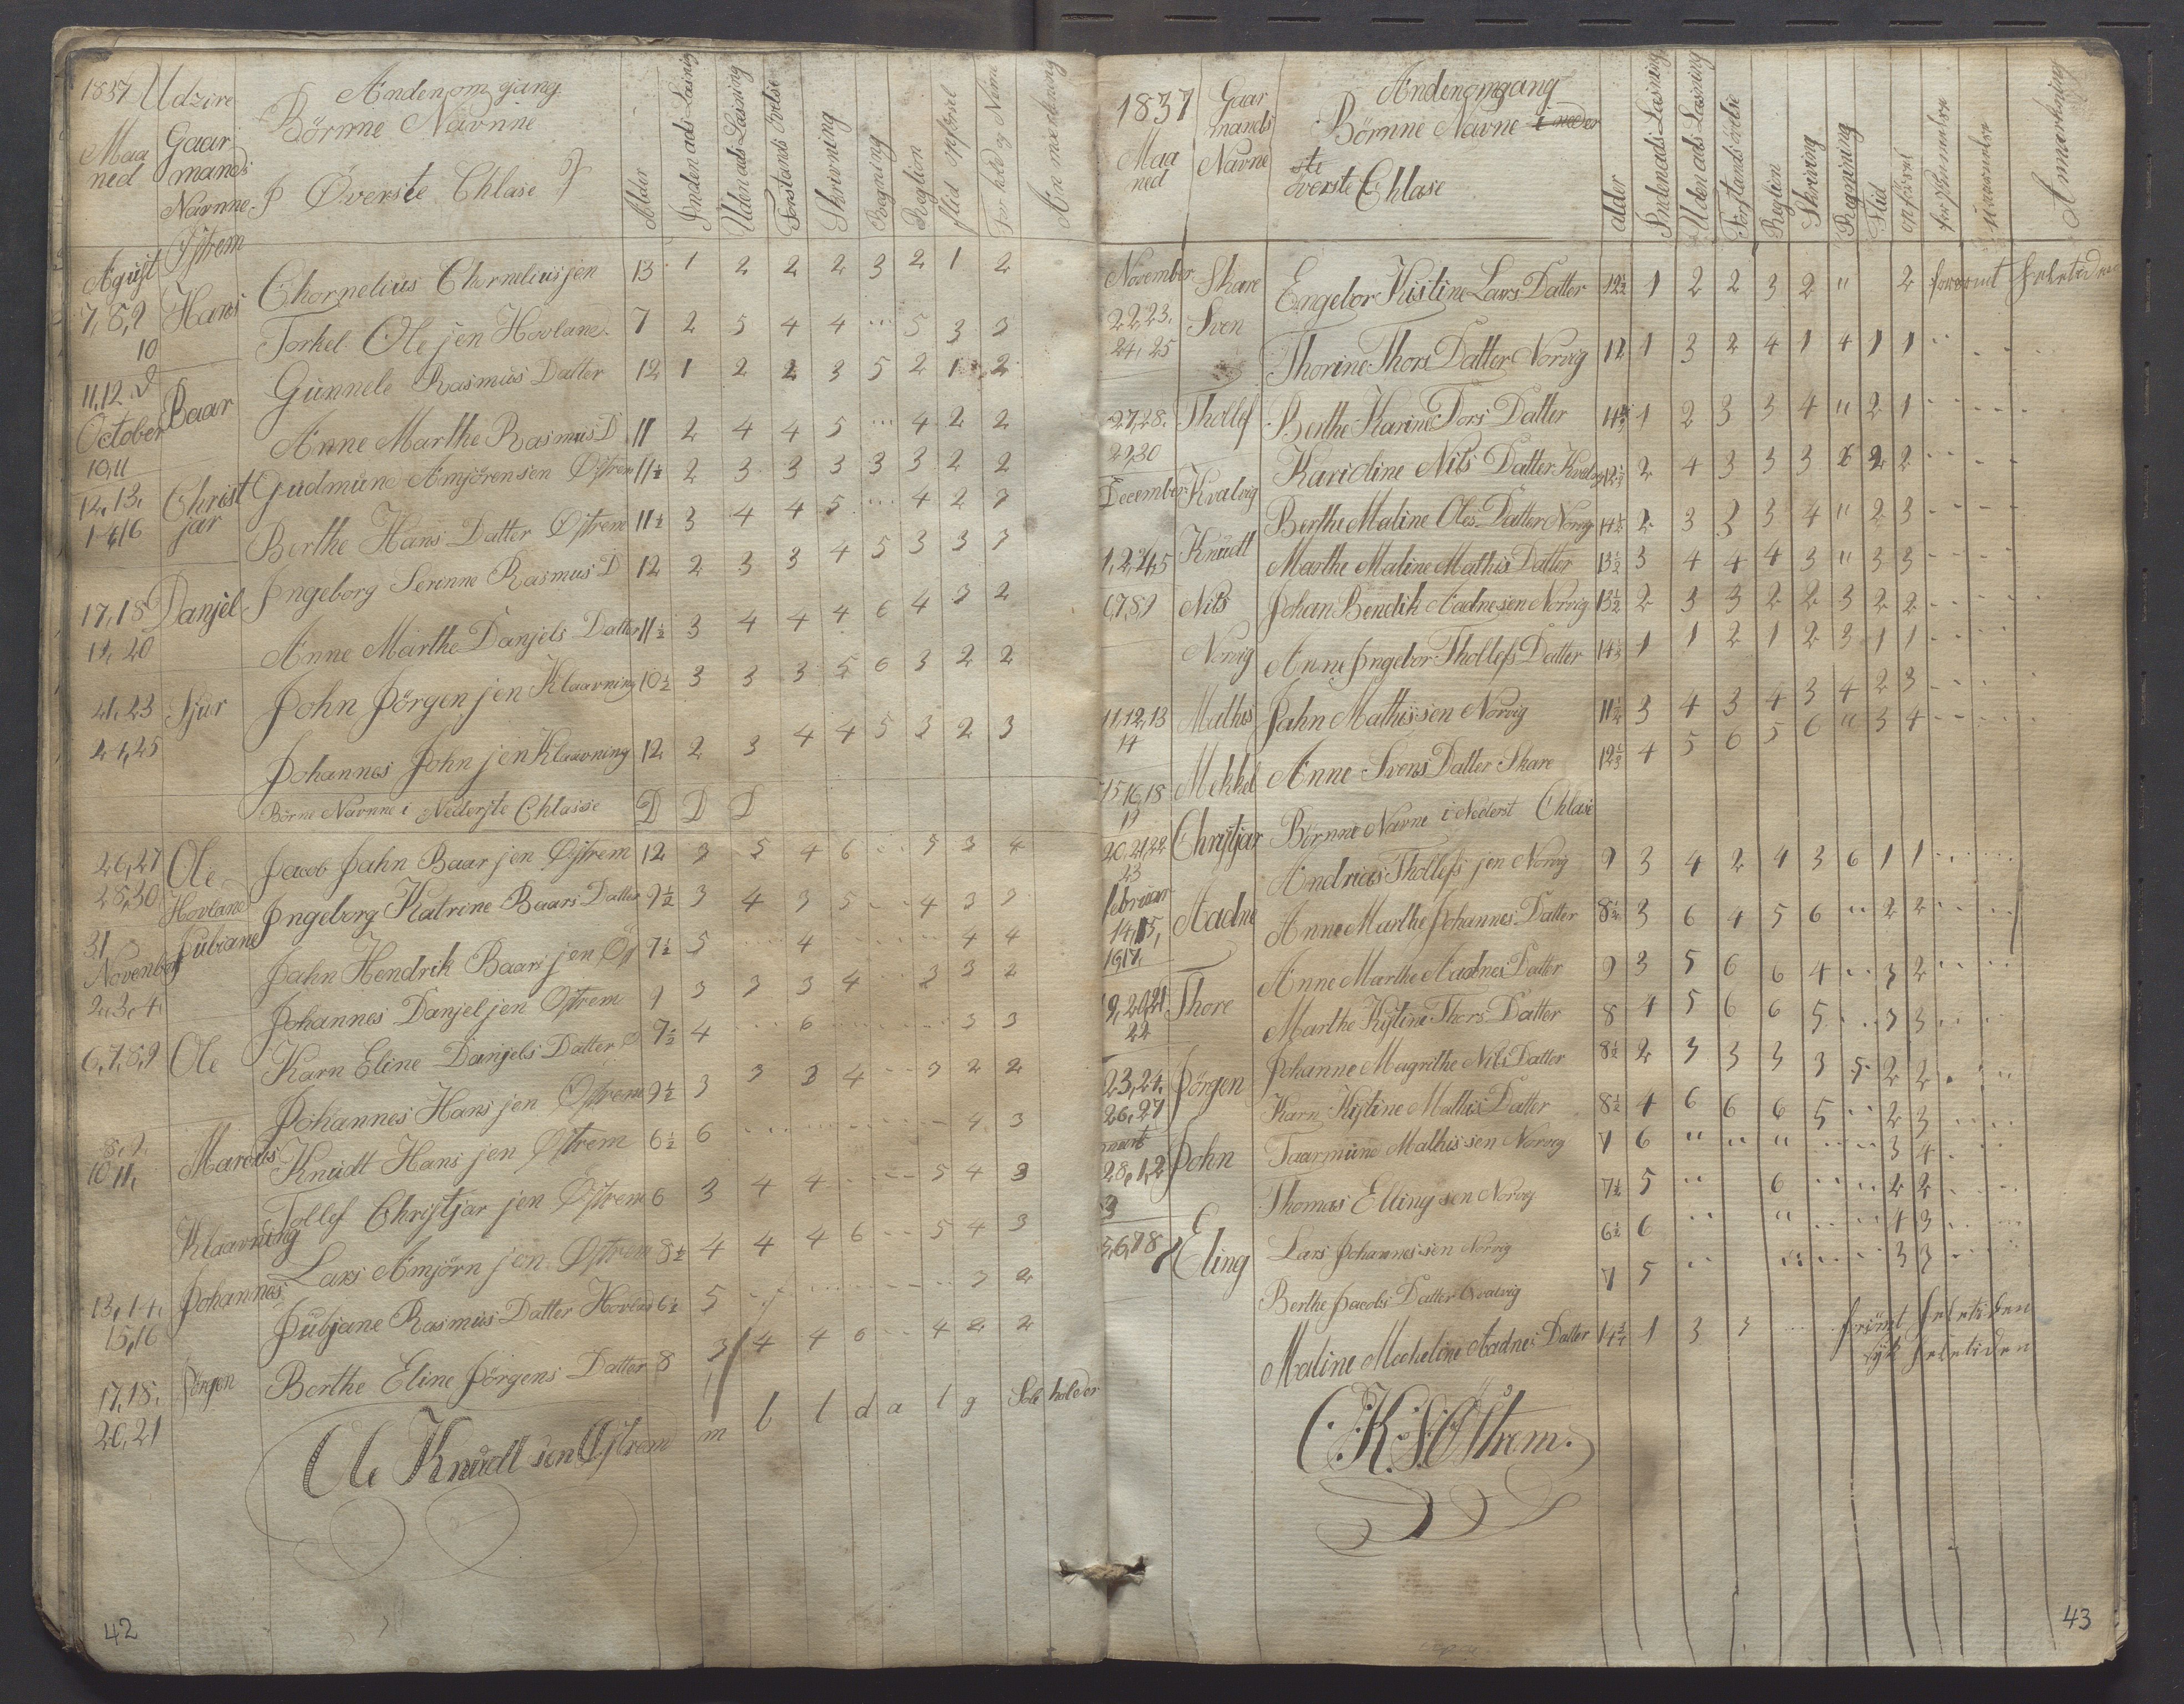 1837 Udzire Anden om gang
Maaned Gaarmands Navnne Börnne Navnne
I Øverste Chlase
Alder Inden ads Læsning Uden ads Læsning Forstands Øvelse Skrivning Regning Reglion flid opførsel Anmærkning
Agust Østrem
7, 8, 9 10 Hans Chornelius Chorneliusjen 13 1 2 2 2 3 2 1 2
Torkel Olejen Hovlane 7 2 5 4 4 ... 5 3 3
11, 12 Baar Gunnele Rasmus Datter 12 1 2 2 3 5 2 1 2
October 10, 11 Anne Marthe Rasmus D 11 2 4 4 5 ... 4 2 2
12, 13, 14, 16 Christjar Gudmune Amjörensen Østrem 11½ 2 3 3 3 3 3 2 2
Berthe Hans Datter Østrem 11½ 3 4 4 5 ... 4 2 3
17, 18 Danjel Ingeborg Serinne Rasmus D 12 2 3 3 4 5 3 3 3
19, 20 Anne Marthe Danjels Datter 11½ 3 4 4 4 6 4 3 2
21, 23 Sjur John Jörgenjen Klaavning 10½ 3 3 3 5 6 3 2 2
24, 25 Johannes Johnjen Klaavning 12 2 3 4 4 5 3 2 3
Börne Navnne i Nederste Chlasse D D D
26, 27 Ole Jacob Jahn Baarjen Østrem 12 3 5 4 6 .. 5 3 4
28, 30 Hovlane Ingeborg Katrine Baars Datter 9½ 3 4 3 5 .. 4 3 3
31 Jubiane Jahn Hendrik Baarsjen Øs 7½ 5 ... 4 ... 4 4
November 2, 3, 4, Johannes Danjeljen Østrem 9 3 3 3 4 .. 3 3 2
6, 7, 8, 9 Ole Karn Eline Danjels Datter Ø 7½ 4 ... 6 ... 3 3
Johannes Hansjen Østrem 9½ 3 3 3 4 .. 3 2 2
8, 9, 10, 11, Marcus Knudt Hansjen Østrem 6½ 6 ... 4 3
Klaavning Tollef Christjarjen Østrem 6 3 4 4 ... 5 4 3
Lars Amjörnjen Østrem 8½ 4 4 4 6 .. 5 4 3
13, 14, 15, 16 Johannes Jubjane Rasmus Datter Hovland 6½ 5 ... 3 2
17, 18, 20, 21 Jörgen Berthe Eline Jörgens Datter 8 3 4 4 6 .. 4 2 2
Ole Knudtsen Østrem m b l d a l g Skoleholder
42
1837 Gaarmands Navne Anden omgang
Maaned Börnne Navne
överste Chlase
alder Indenads Læsning Udenads Læsning Forstands övelse Reglion Skrivning Regnining Flid opförsel forsömmelse nærværelse Anmærkning
November Skare Engebor Kistine Lars Datter 12½ 1 2 2 3 2 " 2 forsömt heletiden
22, 23, 24, 25 Sven Thorine Thors Datter Norvig 12 1 3 2 4 1 4 1 1
27, 28, 29, 30 Thollef Berthe Karine Tors Datter 11½ 1 2 3 3 4 " 2 1
December Kvalvig Karidine Nils Datter 12½ 2 4 3 3 3 6 2 2
Berthe Maline Oles Datter Norvig 14½ 2 3 3 3 4 " 2 3
1, 2, 4, 5 Knudt Marthe Maline Mathis Datter 13½ 3 4 4 4 3 " 3 3
6, 7, 8, 9 Nils Johan Bendik Aadnesen Norvig 13½ 2 3 3 2 2 3 2 2
Norvig Anne Ingebor Thollefs Datter 14½ 1 1 2 1 2 3 1 1
11, 12, 13 14 Mathis Jahn Mathissen Norvig 11½ 3 4 3 4 3 4 2 3
15, 16, 18 19 Mekkel Anne Svens Datter Skare 12½ 4 5 6 5 6 " 3 4
20, 21, 22 23 Christjar Börnne Navne i Nederst Chlase
Andrias Thollefsjen Norvig 9 3 4 2 4 3 6 1 1
februar 14, 15, 16, 17, Aadne Anne Marthe Johannes Datter 8½ 3 6 4 5 6 .. 2 2
Anne Marthe Aadnes Datter 9 3 5 6 6 4 .. 3 2
19, 20, 21 22 Thore Marthe Kistine Thors Datter 8 4 5 6 6 5 .. 3 3
23, 24, 26, 27 Jörgen Johanne Magrethe Nils Datter 8½ 2 3 3 3 3 5 2 2
Karn Kistine Mathis Datter 8½ 4 6 6 6 5 .. 2 3
marts 28, 1, 2 3 John Taarmune Mathissen Norvig 7 6 " " " .. .. 3 4
Thomas Ellingsen Norvig 7½ 5 .. 6 .. .. 2 2
5, 6, 7 8 Eling Lars Johannessen Norvig 6½ 6 .. " .. .. 4 3
Berthe Jacobs Datter Qvalvig 7 5 .. .. .. 3 3
Maline Mecheline Aadnes Datter 14¼ 1 3 3 ... forsömt heletiden
syk heletiden
C. K. S. Østrem.
43